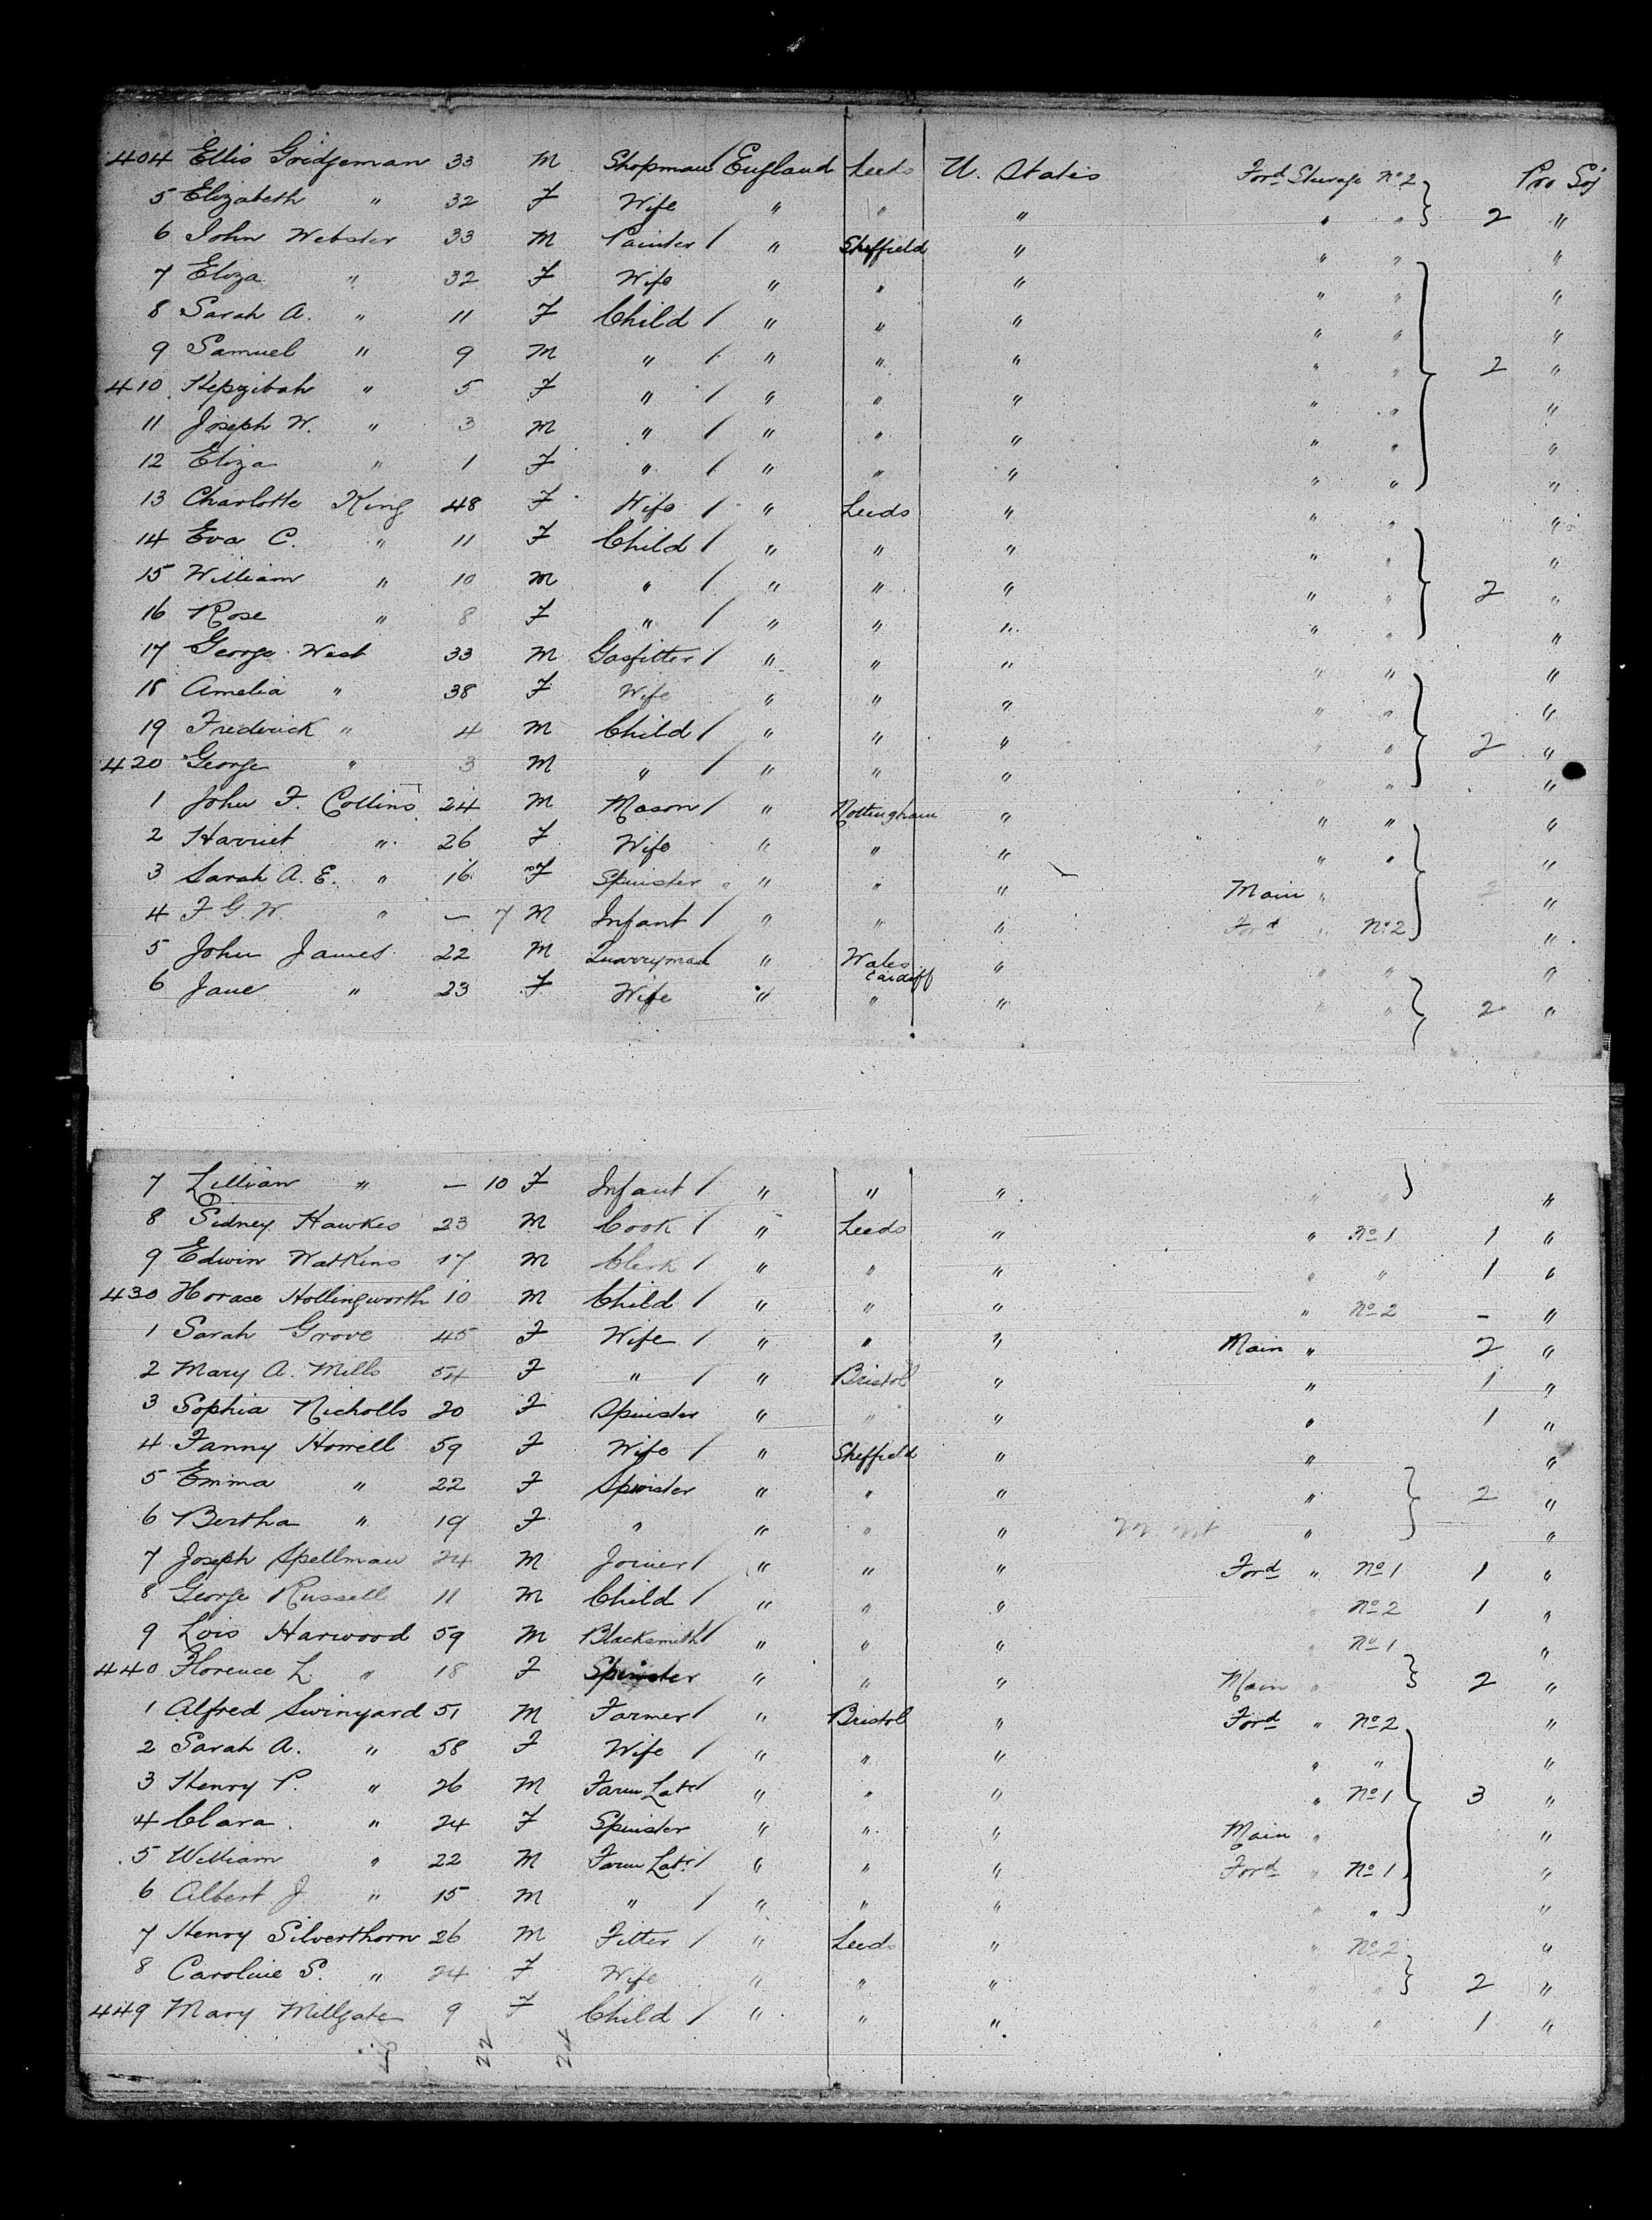 404 Ellis Gridgeman 33 M Shopman / England Leeds U. States Ford Steerage No 2 Pro Soj
5 Elizabeth " 32 F Wife " " " " " 2 "
6 John Webster 33 M Painter / " Sheffield " " " "
7 Eliza " 32 F Wife " " " " " "
8 Sarah A. " 11 F Child / " " " " " "
9 Samuel " 9 M " / " " " " " 2 "
410 Hepzibah " 5 F " / " " " " " "
11 Joseph W. " 3 M " / " " " " " "
12 Eliza " 1 F " / " " " " " "
13 Charlotte King 48 F Wife / " Leeds " " " "
14 Eva C. " 11 F Child / " " " " " "
15 William " 10 M " / " " " " " 2 "
16 Rose " 8 F " / " " " " " "
17 George West 33 M Gasfitter / " " " " " "
18 Amelia " 38 F Wife " " " " " "
19 Frederick " 4 M Child / " " " " " 2 "
420 George " 3 M " / " " " " "
1 John F. Collins 24 M Mason / " Nottingham " " " "
2 Harriet " 26 F Wife " " " " " "
3 Sarah A. E. " 16 F Spinster " " " Main " 2 "
4 F G. W. " — 7 M Infant / " " " Ford " No 2 "
5 John James 22 M Quarryman / " Wales Cardiff " " " "
6 Jane " 23 F Wife " " " " " 2 "
7 Lillian " — 10 F Infant / " " " " " "
8 Sidney Hawkes 23 M Cook / " Leeds " " No 1 1 "
9 Edwin Watkins 17 M Clerk / " " " " " 1 "
430 Horace Hollingworth 10 M Child / " " " " No 2 - "
1 Sarah Grove 45 F Wife / " " " Main " 2 "
2 Mary A. Mills 54 F " / " Bristol " " 1 "
3 Sophia Nicholls 20 F Spinster " " " " 1 "
4 Fanny Horrell 59 F Wife / " Sheffield " " "
5 Emma " 22 F Spinster " " " " 2 "
6 Bertha " 19 F " " " " " "
7 Joseph Spellman 24 M Joiner / " " " Ford " No 1 1 "
8 George Russell 11 M Child / " " " No 2 1 "
9 Lois Harwood 59 M Blacksmith / " " " " No 1 "
440 Florence L. " 18 F Spinster " " " Main " 2 "
1 Alfred Swinyard 51 M Farmer / " Bristol " Ford " No 2 "
2 Sarah A. " 58 F Wife / " " " " " "
3 Henry P. " 26 M Farm Labr / " " " " No 1 3 "
4 Clara " 24 F Spinster " " " Main " "
5 William " 22 M Farm Labr / " " " Ford " No 1 "
6 Albert J " 15 M " / " " " " " "
7 Henry Silverthorn 26 M Fitter / " Leeds " " No 2 "
8 Caroline S. " 24 F Wife " " " " " 2 "
449 Mary Millgate 9 F Child / " " " " " 1 "
22 24